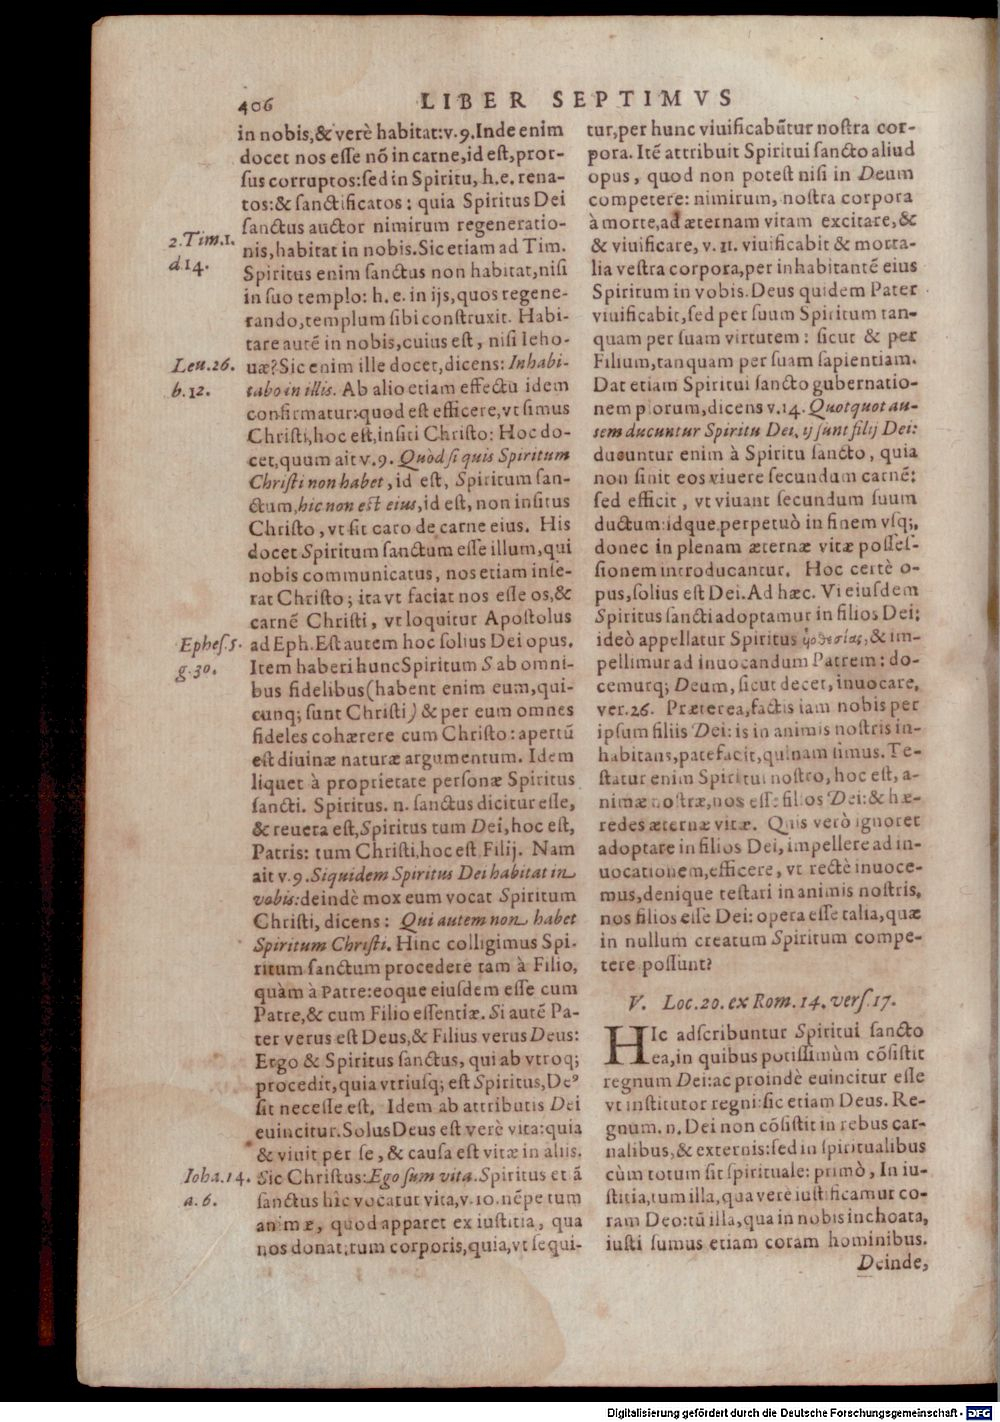 406
LIBER SEPTIMVS
in nobis,& verè habitat:v.9.Inde enim
docet nos esse nō in carne,id est,pror-
sus corruptos:sed in Spiritu, h.e. rena-
tos:& sanctificatos: quia Spiritus Dei
sanctus auctor nimirum regeneratio-
2.Tim.1.
nis,habitat in nobis.Sic etiam ad Tim.
d.14.
Spiritus enim sanctus non habitat,nisi
in suo templo: h. e. in ijs,quos regene-
rando,templum sibi construxit. Habi-
tare autē in nobis,cuius est, nisi Ieho-
Leu.26.
uæ?Sic enim ille docet,dicens: Inhabi-
b.12.
tabo in illis. Ab alio etiam effectu idem
confirmatur:quod est efficere,vt simus
Christi,hoc est,insiti Christo: Hoc do-
cet,quum ait v.9. Quòd si quis Spiritum
Christi non habet, id est, Spiritum san-
ctum,hic non est eius,id est, non insitus
Christo, vt sit caro de carne eius. His
docet Spiritum sanctum esse illum,qui
nobis communicatus, nos etiam inse-
rat Christo; ita vt faciat nos esse os,&
carnē Christi, vt loquitur Apostolus
Ephes.5.
ad Eph. Est autem hoc solius Dei opus.
g.30.
Item haberi hunc Spiritum S ab omni-
bus fidelibus(habent enim eum,qui-
cunq; sunt Christi) & per eum omnes
fideles cohærere cum Christo: apertū
est diuinæ naturæ argumentum. Idem
liquet à proprietate personæ Spiritus
sancti. Spiritus. n. sanctus dicitur esse,
& reuera est,Spiritus tum Dei,hoc est,
Patris: tum Christi,hoc est Filij. Nam
ait v.9. Siquidem Spiritus Dei habitat in
vobis:deindè mox eum vocat Spiritum
Christi, dicens: Qui autem non habet
Spiritum Christi. Hinc colligimus Spi-
ritum sanctum procedere tam à Filio,
quàm à Patre:eoque eiusdem esse cum
Patre,& cum Filio essentiæ. Si autē Pa-
ter verus est Deus,& Filius verus Deus:
Ergo & Spiritus sanctus, qui ab vtroq;
procedit,quia vtriusq; est Spiritus,Deꝰ
sit necesse est. Idem ab attributis Dei
euincitur. Solus Deus est verè vita:quia
& viuit per se, & causa est vitæ in aliis.
Ioha.14.
Sic Christus:Ego sum vita. Spiritus et ā
a.6.
sanctus hîc vocatur vita,v.10.nēpe tum
animæ, quod apparet ex iustitia, qua
nos donat:tum corporis,quia,vt sequi-
tur,per hunc viuificabūtur nostra cor-
pora. Itē attribuit Spiritui sancto aliud
opus, quod non potest nisi in Deum
competere: nimirum, nostra corpora
à morte,ad æternam vitam excitare,&
& viuificare, v. 11. viuificabit & morta-
lia vestra corpora,per inhabitantē eius
Spiritum in vobis.Deus quidem Pater
viuificabit,sed per suum Spiritum tan-
quam per suam virtutem: sicut & per
Filium,tanquam per suam sapientiam.
Dat etiam Spiritui sancto gubernatio-
nem piorum,dicens v.14. Quotquot au-
tem ducuntur Spiritu Dei, ij sunt filij Dei:
ducuntur enim à Spiritu sancto, quia
non sinit eos viuere secundum carnē:
sed efficit, vt viuant secundum suum
ductum:idque perpetuò in finem vsq;,
donec in plenam æternæ vitæ posses-
sionem introducantur. Hoc certè o-
pus,solius est Dei. Ad hæc. Vi eiusdem
Spiritus sancti adoptamur in filios Dei;
ideò appellatur Spiritus υἱοθεσίας,& im-
pellimur ad inuocandum Patrem: do-
cemurq; Deum, sicut decet, inuocare,
ver.26. Præterea,factis iam nobis per
ipsum filiis Dei: is in animis nostris in-
habitans,patefacit,quinam simus. Te-
statur enim Spiritui nostro, hoc est, a-
nimæ nostræ,nos esse filios Dei:& hæ-
redes æternæ vitæ. Quis verò ignoret
adoptare in filios Dei, impellere ad in-
uocationem,efficere, vt rectè inuoce-
mus,denique testari in animis nostris,
nos filios esse Dei: opera esse talia,quæ
in nullum creatum Spiritum compe-
tere possunt?
V. Loc.20. ex Rom.14. vers.17.
HIc adscribuntur Spiritui sancto
ea,in quibus potissimùm cōsistit
regnum Dei:ac proindè euincitur esse
vt institutor regni:sic etiam Deus. Re-
gnum. n. Dei non cōsistit in rebus car-
nalibus,& externis:sed in spiritualibus
cùm totum sit spirituale: primò, In iu-
stitia,tum illa,qua verè iustificamur co-
ram Deo:tū illa,qua in nobis inchoata,
iusti sumus etiam coram hominibus.
Deinde,
Digitalisierung gefördert durch die Deutsche Forschungsgemeinschaft - DFG